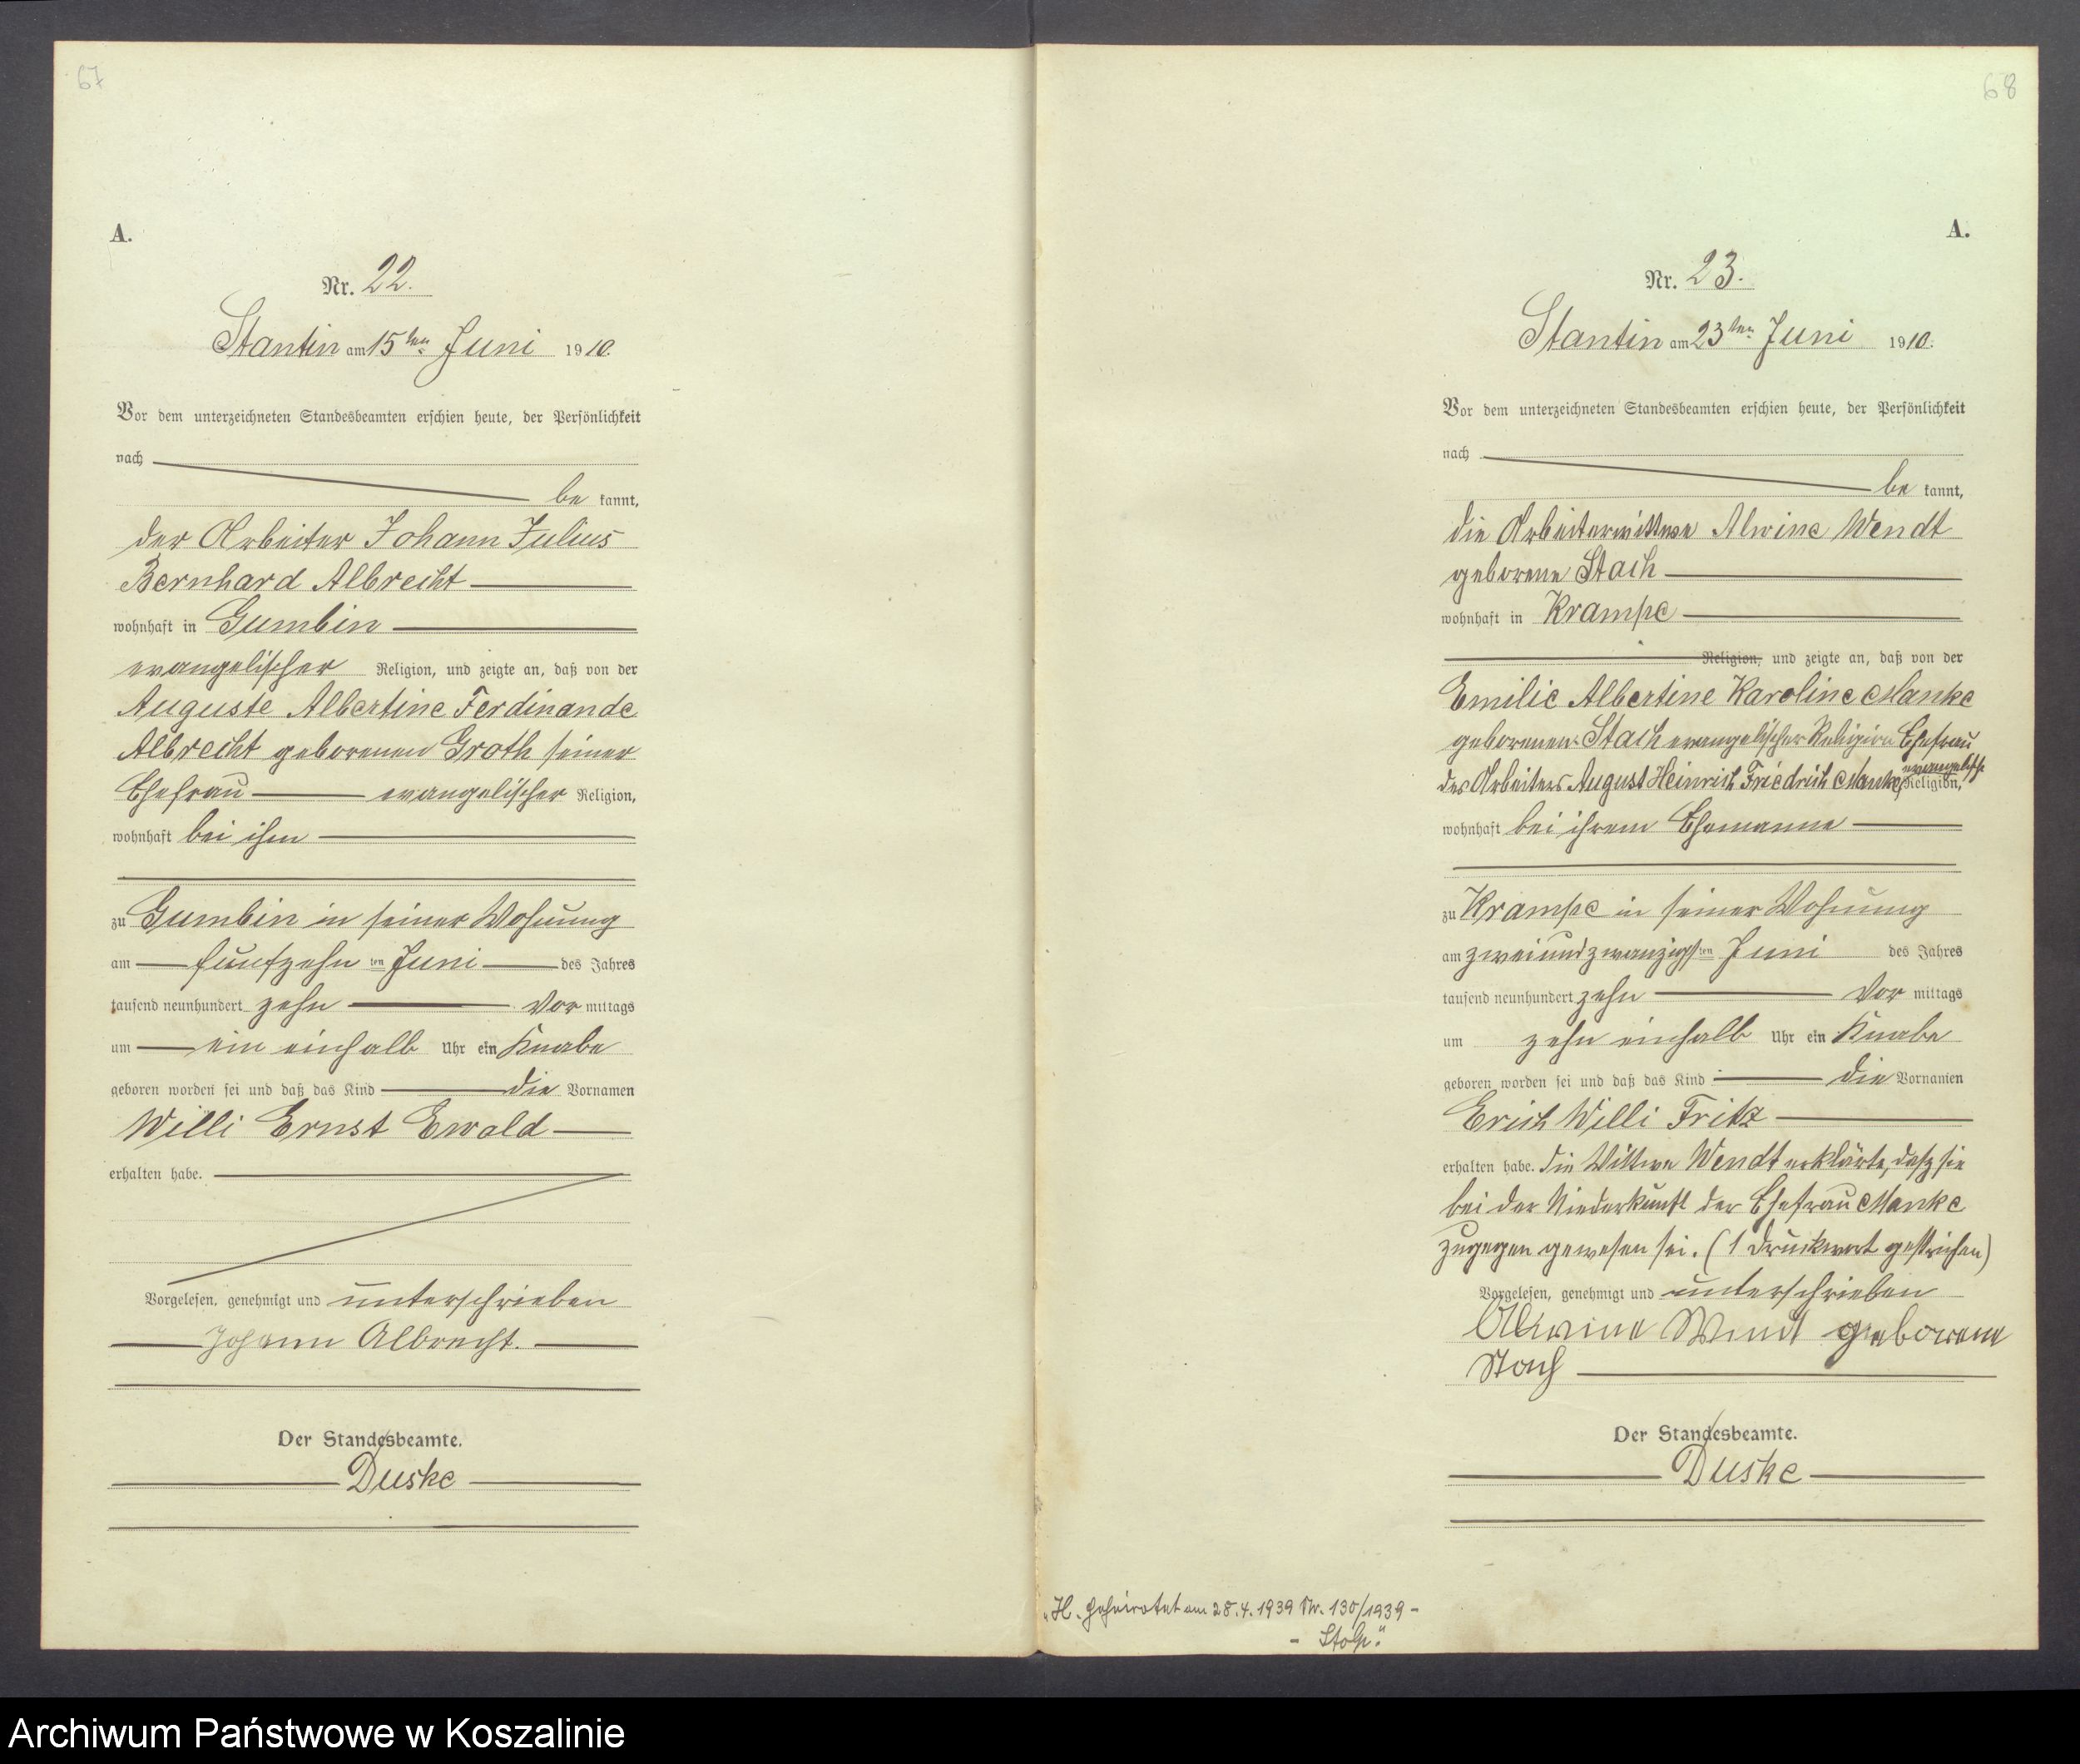 67
A.
Nr. 22.
Stantin am 15ten Juni 1910.
Vor dem unterzeichneten Standesbeamten erschien heute, der Persönlichkeit
nach
be kannt,
der Arbeiter Johann Julius
Bernhard Albrecht
wohnhaft in Gumbin
evangelischer Religion, und zeigte an, daß von der
Auguste Albertine Ferdinande
Albrecht geborenen Groth seiner
Ehefrau evangelischer Religion,
wohnhaft bei ihm
zu Gumbin in seiner Wohnung
am fünfzehn ten Juni des Jahres
tausend neunhundert zehn Vor mittags
um ein einhalb Uhr ein Knabe
geboren worden sei und daß das Kind die Vornamen
Willi Ernst Ewald
erhalten habe.
Vorgelesen, genehmigt und unterschrieben
Johann Albrecht.
Der Standesbeamte.
Duske
68
A.
Nr. 23.
Stantin am 23ten Juni 1910.
Vor dem unterzeichneten Standesbeamten erschien heute, der Persönlichkeit
nach
be kannt,
die Arbeiterwittwe Alwine Wendt
geborene Stach
wohnhaft in Krampe
Religion, und zeigte an, daß von der
Emilie Albertine Karoline Manke
geborenen Stach evangelischer Religion Ehefrau
des Arbeiters August Heinrich Friedrich Manke, evangelisch Religion,
wohnhaft bei ihrem Ehemanne
zu Krampe in seiner Wohnung
am zweiundzwanzigsten Juni des Jahres
tausend neunhundert zehn Vor mittags
um zehn einhalb Uhr ein Knabe
geboren worden sei und daß das Kind die Vornamen
Erich Willi Fritz
erhalten habe. Die Wittwe Wendt erklärte, daß sie
bei der Niederkunft der Ehefrau Manke
zugegen gewesen sei. (1 Druckwort gestrichen)
Vorgelesen, genehmigt und unterschrieben
Alwine Wendt geborene
Stach
Der Standesbeamte.
Duske
„H. geheiratet am 28.4.1939 Nr. 130/1939 -
- Stolp."
Archiwum Państwowe w Koszalinie